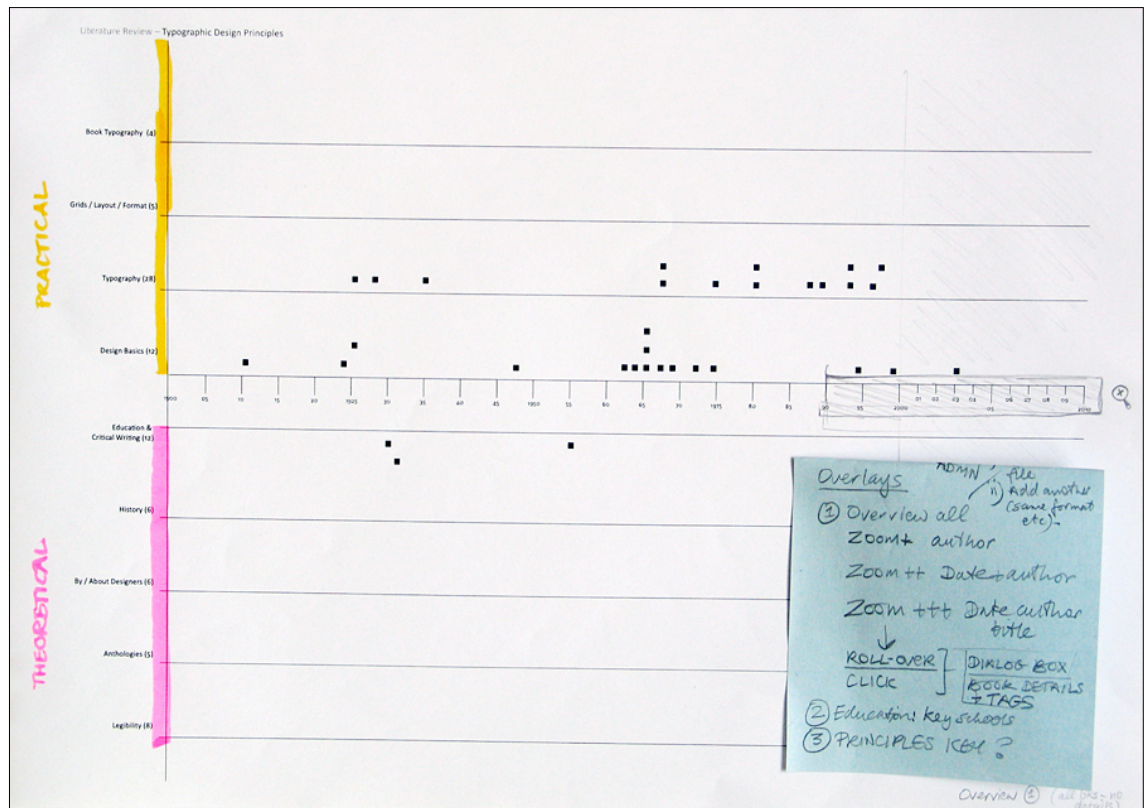 Literature Review – Typographic Design Principles
PRACTICAL
Book Typography (4)
Grids / Layout / Format (5)
Typography (28)
Design Basics (12)
1900 05 10 15 20 1925 30 35 40 45 1950 55 60 65 70 1975 80 85 90 95 2000 01 02 03 04 05 06 07 08 09 2010
THEORETICAL
Education &
Critical Writing (12)
History (6)
By / About Designers (6)
Anthologies (5)
Legibility (8)
Overlays
ADMN
file
ii) Add another
(same format
etc)
① Overview all
Zoom+ author
Zoom ++ Date+author
Zoom +++ Date author
title
ROLL-OVER
CLICK
DIALOG BOX
BOOK DETAILS
+ TAGS
② Education: key schools
③ PRINCIPLES KEY?
Overview ①